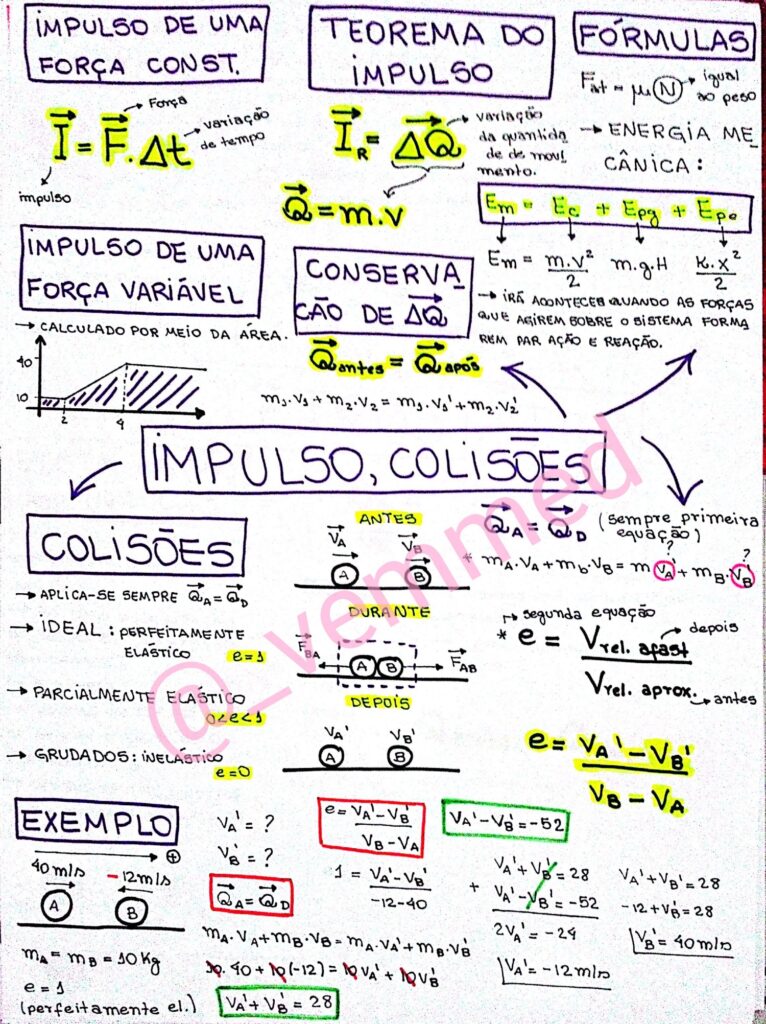 IMPULSO DE UMA
FORÇA CONST.
I = F.Δt
Força
variação
de tempo
impulso
TEOREMA DO
IMPULSO
I_R = ΔQ
variação
da quantida
de de movi
mento.
Q = m.v
FÓRMULAS
Fat = μ N
igual
ao peso
→ ENERGIA ME
CÂNICA:
Em = Ec + Epg + Epe
Em = m.v²/2 m.g.H k.x²/2
→ IRÁ ACONTECER QUANDO AS FORÇAS
QUE AGIREM SOBRE O SISTEMA FORMA
REM PAR AÇÃO E REAÇÃO.
IMPULSO DE UMA
FORÇA VARIÁVEL
→ CALCULADO POR MEIO DA ÁREA.
40
10
2
4
CONSERVA_
ÇÃO DE ΔQ
Qantes = Qapós
m₁.v₁ + m₂.v₂ = m₁.v₁' + m₂.v₂'
IMPULSO, COLISÕES
COLISÕES
→ APLICA-SE SEMPRE QA = QD
→ IDEAL: PERFEITAMENTE
ELÁSTICO e=1
→ PARCIALMENTE ELÁSTICO
0<e<1
→ GRUDADOS: INELÁSTICO
e=0
ANTES
VA VB
A B
DURANTE
FBA A B FAB
DEPOIS
VA' VB'
A B
QA = QD (sempre primeira
equação)
? ?
* mA.VA + mb.VB = m VA' + mB.VB'
segunda equação
* e = Vrel. afast / Vrel. aprox.
depois
antes
e = VA' - VB' / VB - VA
EXEMPLO
+
40 m/s -12m/s
A B
mA = mB = 10 Kg
e = 1
(perfeitamente el.)
VA' = ?
VB' = ?
QA = QD
mA.VA + mB.VB = mA.VA' + mB.VB'
10.40 + 10(-12) = 10VA' + 10VB'
VA' + VB' = 28
e = VA' - VB' / VB - VA
1 = VA' - VB' / -12-40
VA' - VB' = -52
+
VA' + VB' = 28
VA' - VB' = -52
2VA' = -24
VA' = -12m/s
VA' + VB' = 28
-12 + VB' = 28
VB' = 40m/s
@_vemmed